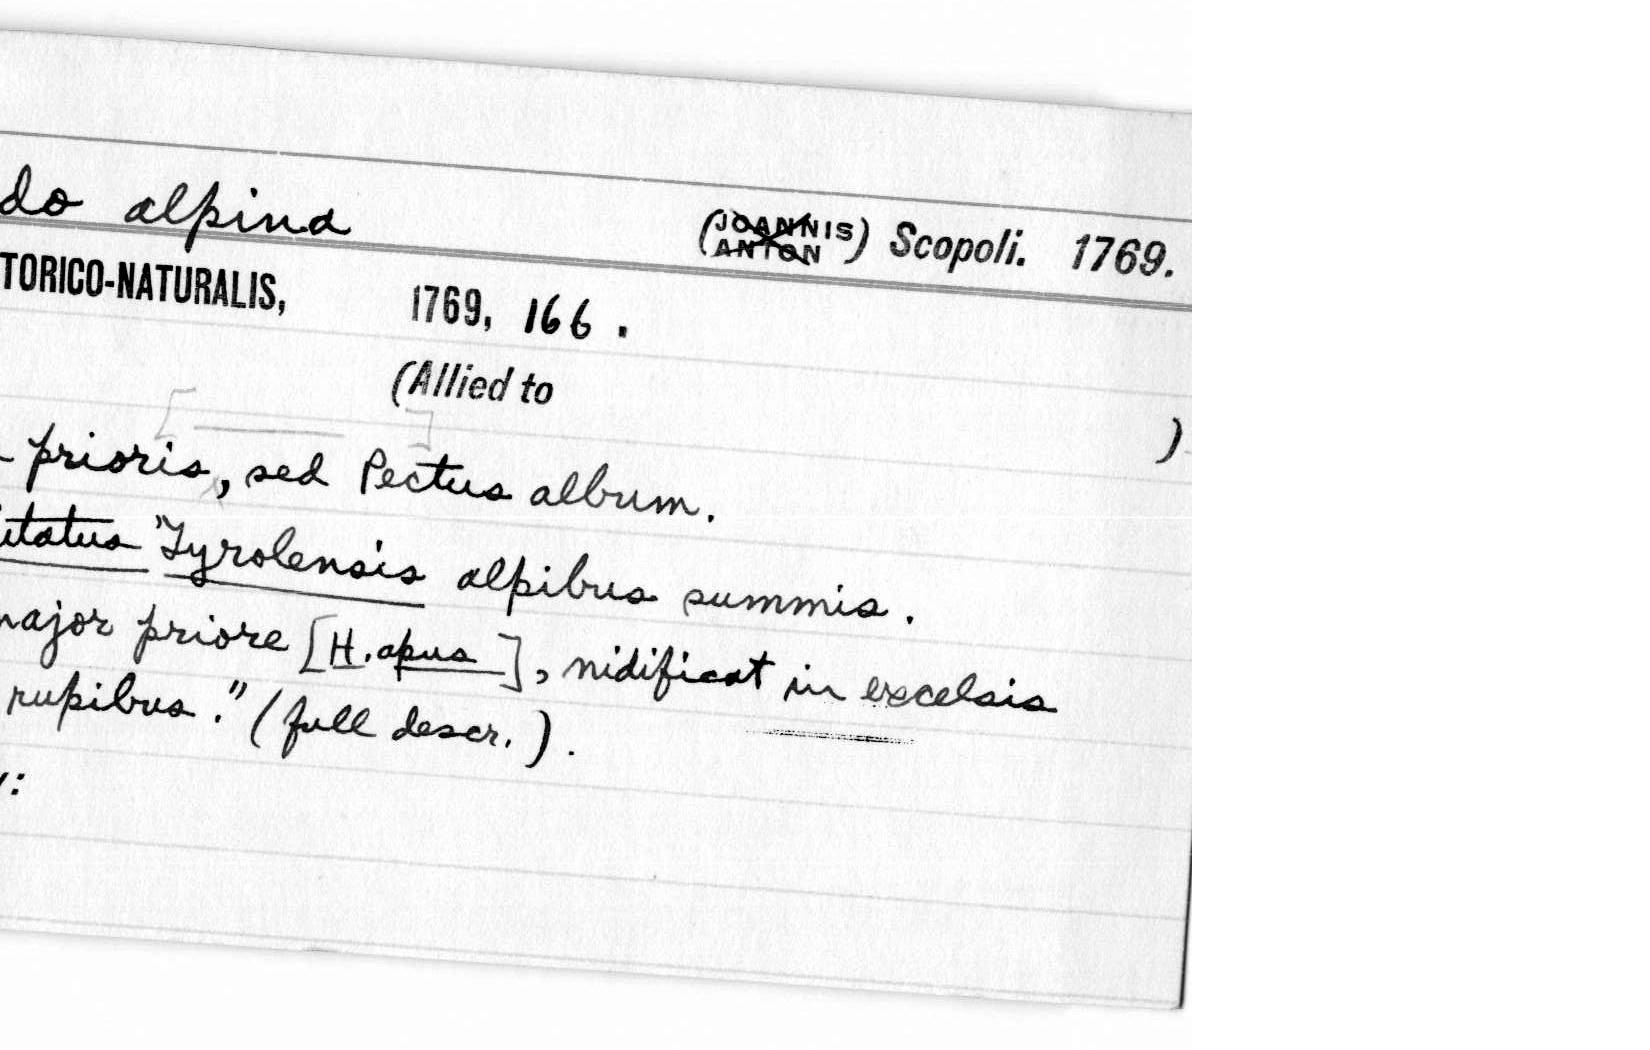 do alpina (JOANNIS ANTON) Scopoli. 1769.
TORICO-NATURALIS, 1769, 166.
(Allied to )
prioris, sed Pectus album.
itatus "Tyrolensis alpibus summis.
major priore [H. apus], nidificat in excelsis
rupibus." (full descr.).
y: